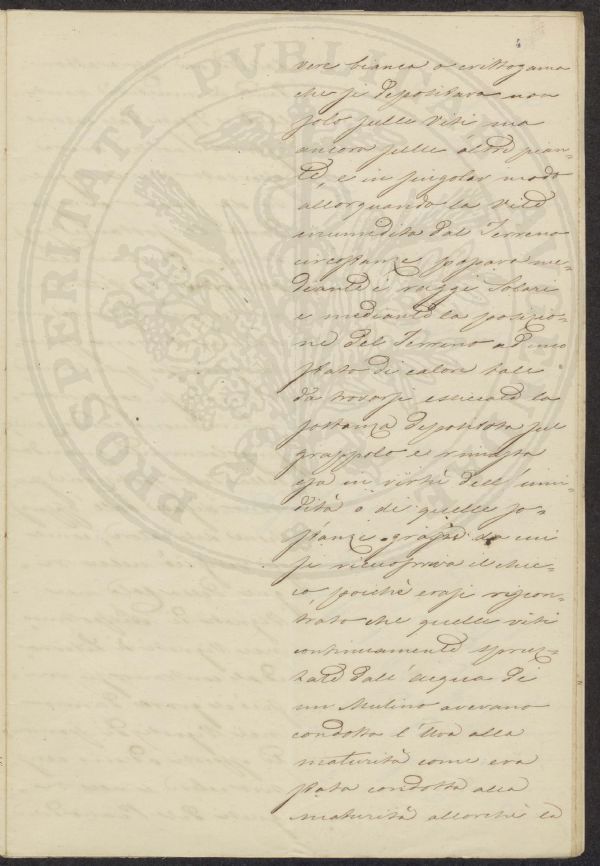 vere bianca o crittogama
che si depositava non
solo sulle viti ma
ancora sulle altre pian-
te, e in singolar modo
allorquando la vite
inumidita dal Terreno
circostanze, passava me-
diante i raggi Solari
e mediante la posizio-
ne del Terreno ad uno
stato di calore tale
da trovarsi essiccata la
sostanza depositata sul
grappolo e rimasta
essa in virtù dell'umi-
dità o di quelle so-
stanze grasse da cui
si ricuopriva il chic-
co poichè erasi riscon-
trato che quelle viti
continuamente spruz-
zate dall'acqua di
un Mulino avevano
condotta l'Uva alla
maturità come era
stata condotta alla
maturità allorchè la
PROSPERITATI PVBLICAE AVGENDAE